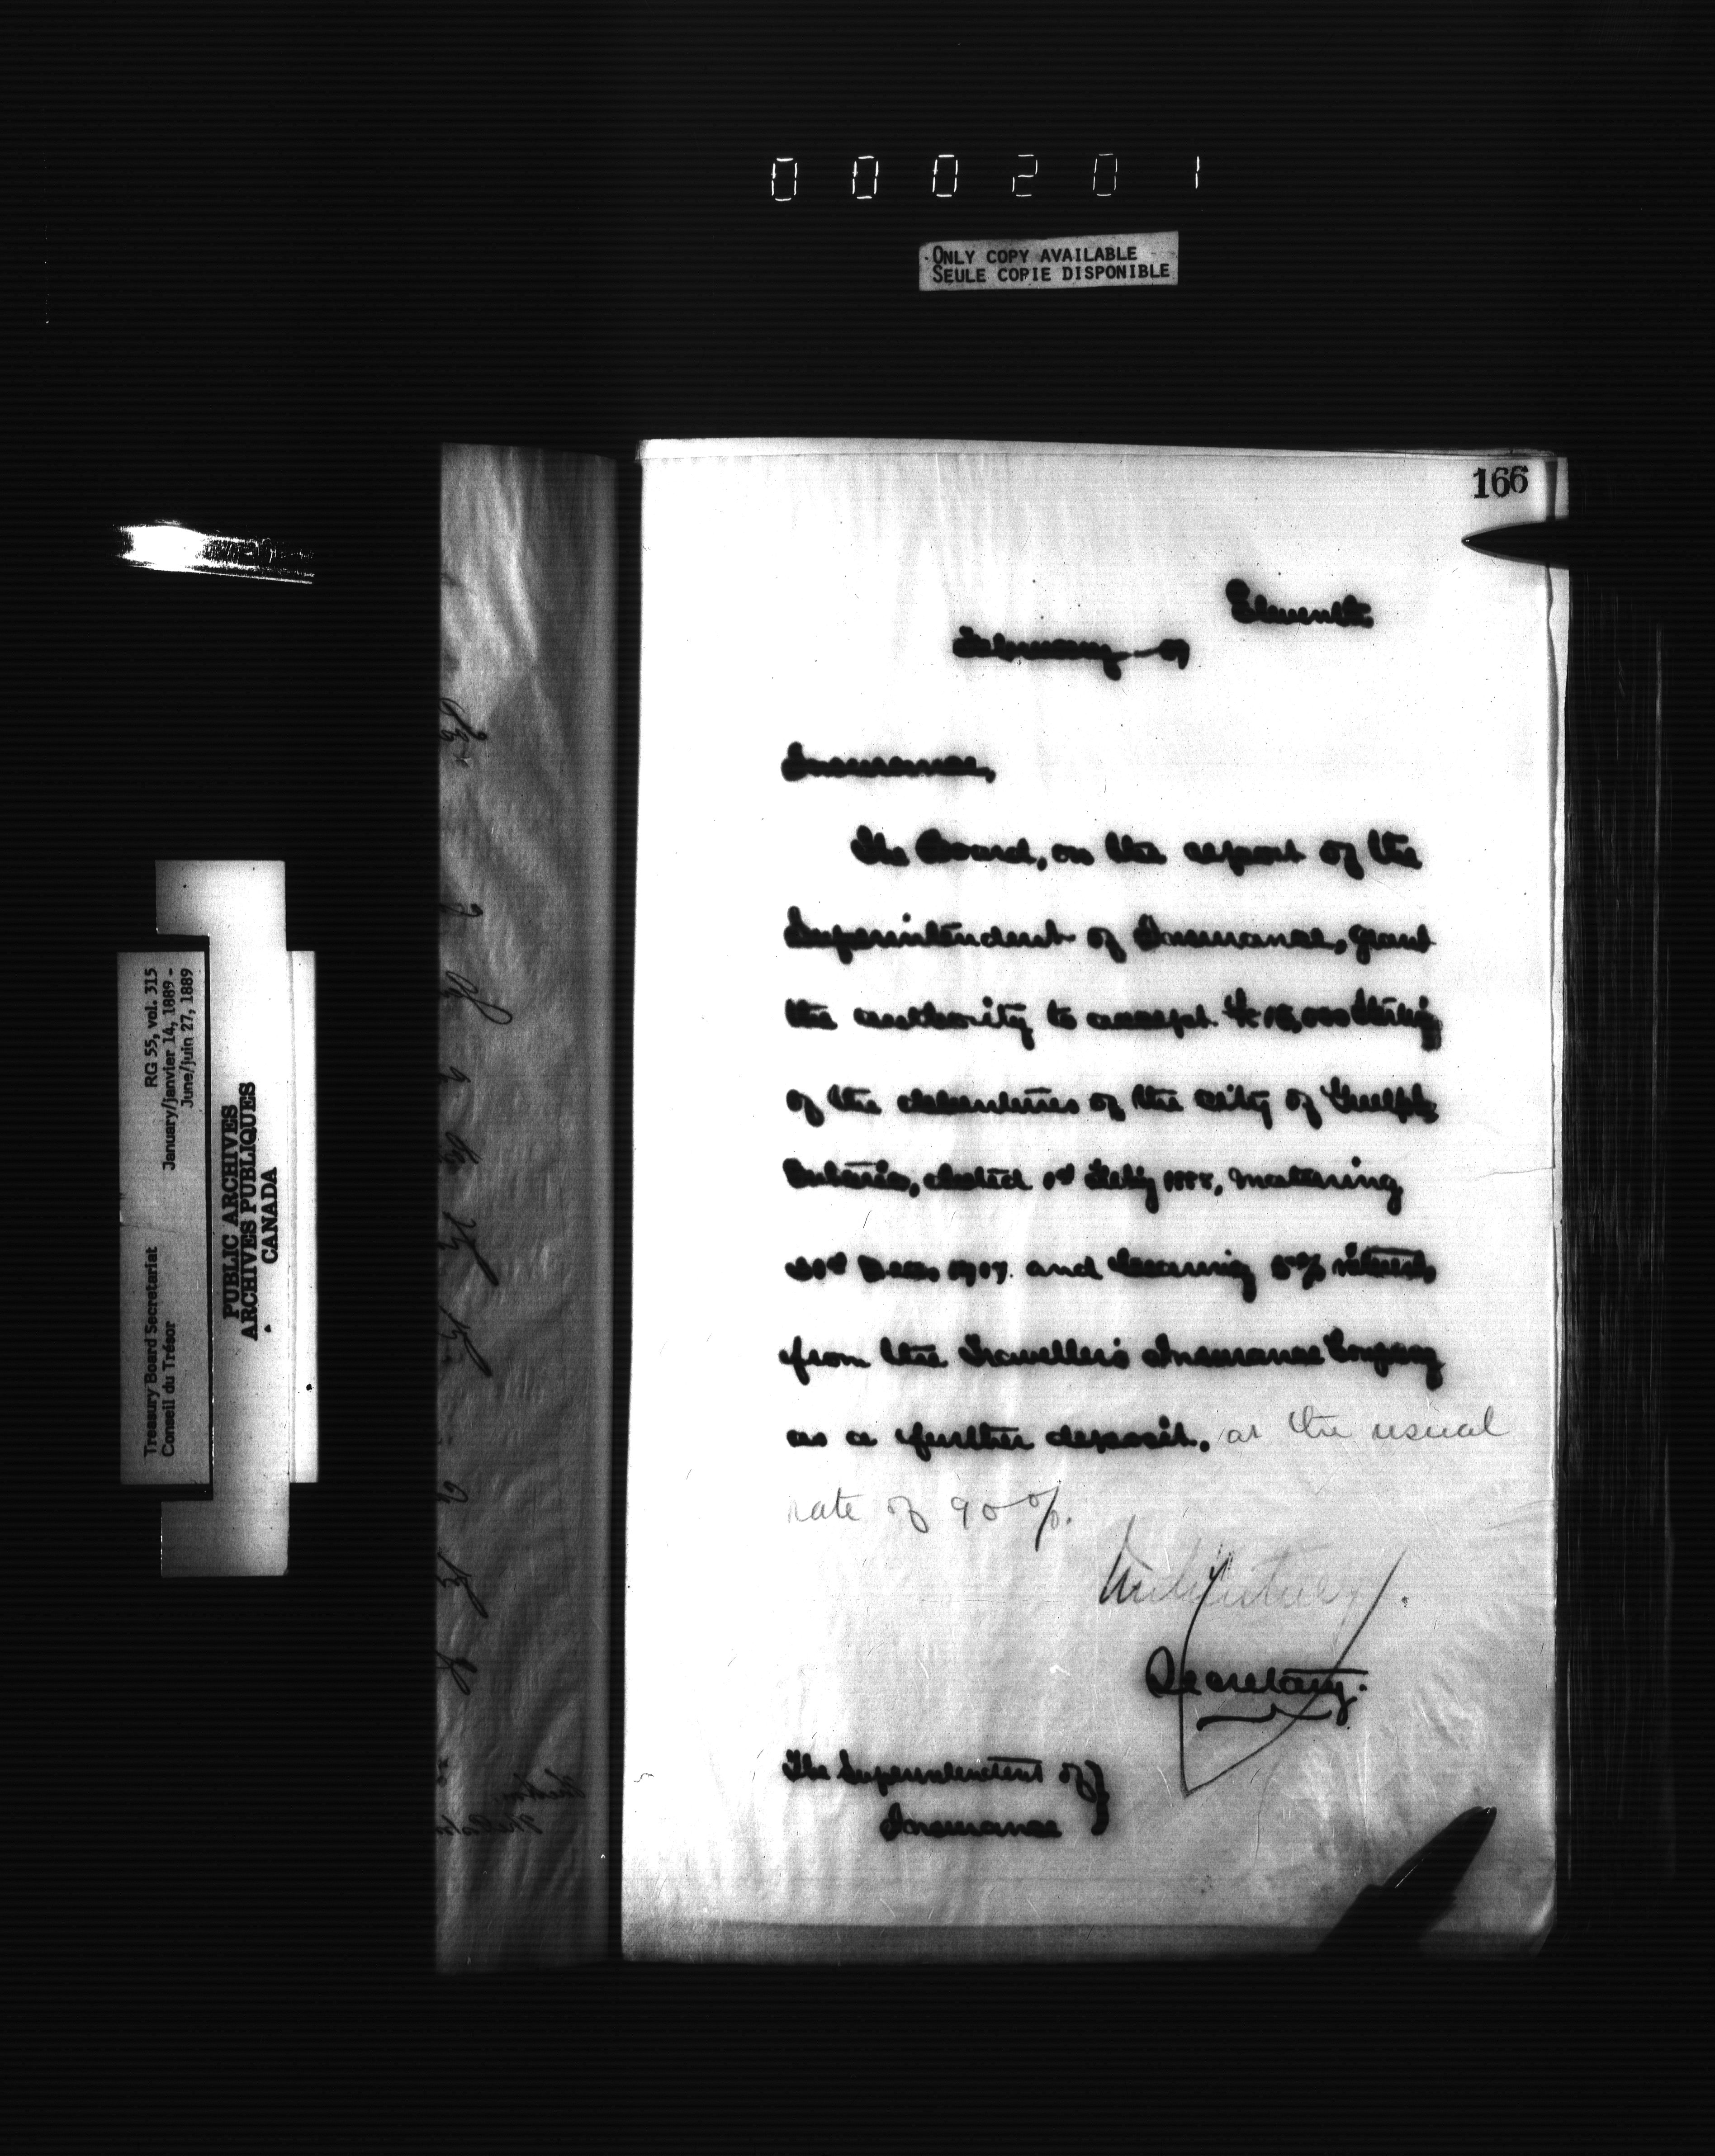 000201
ONLY COPY AVAILABLE
SEULE COPIE DISPONIBLE
166
Eleventh
February 89
Insurance,
The Board, on the report of the
Superintendent of Insurance, grant
the authority to accept Sterling
of the debentures of the City of Guelph,
Ontario, dated 1st 1888, maturing
Dec. 1907 and bearing 5% interest,
from the Traveller's Insurance Company
as a further deposit, at the usual
rate of 90%.
Secretary.
The Superintendent of
Insurance
Treasury Board Secretariat RG 55, vol. 315
Conseil du Trésor January/janvier 14, 1889 -
June/juin 27, 1889
PUBLIC ARCHIVES
ARCHIVES PUBLIQUES
CANADA